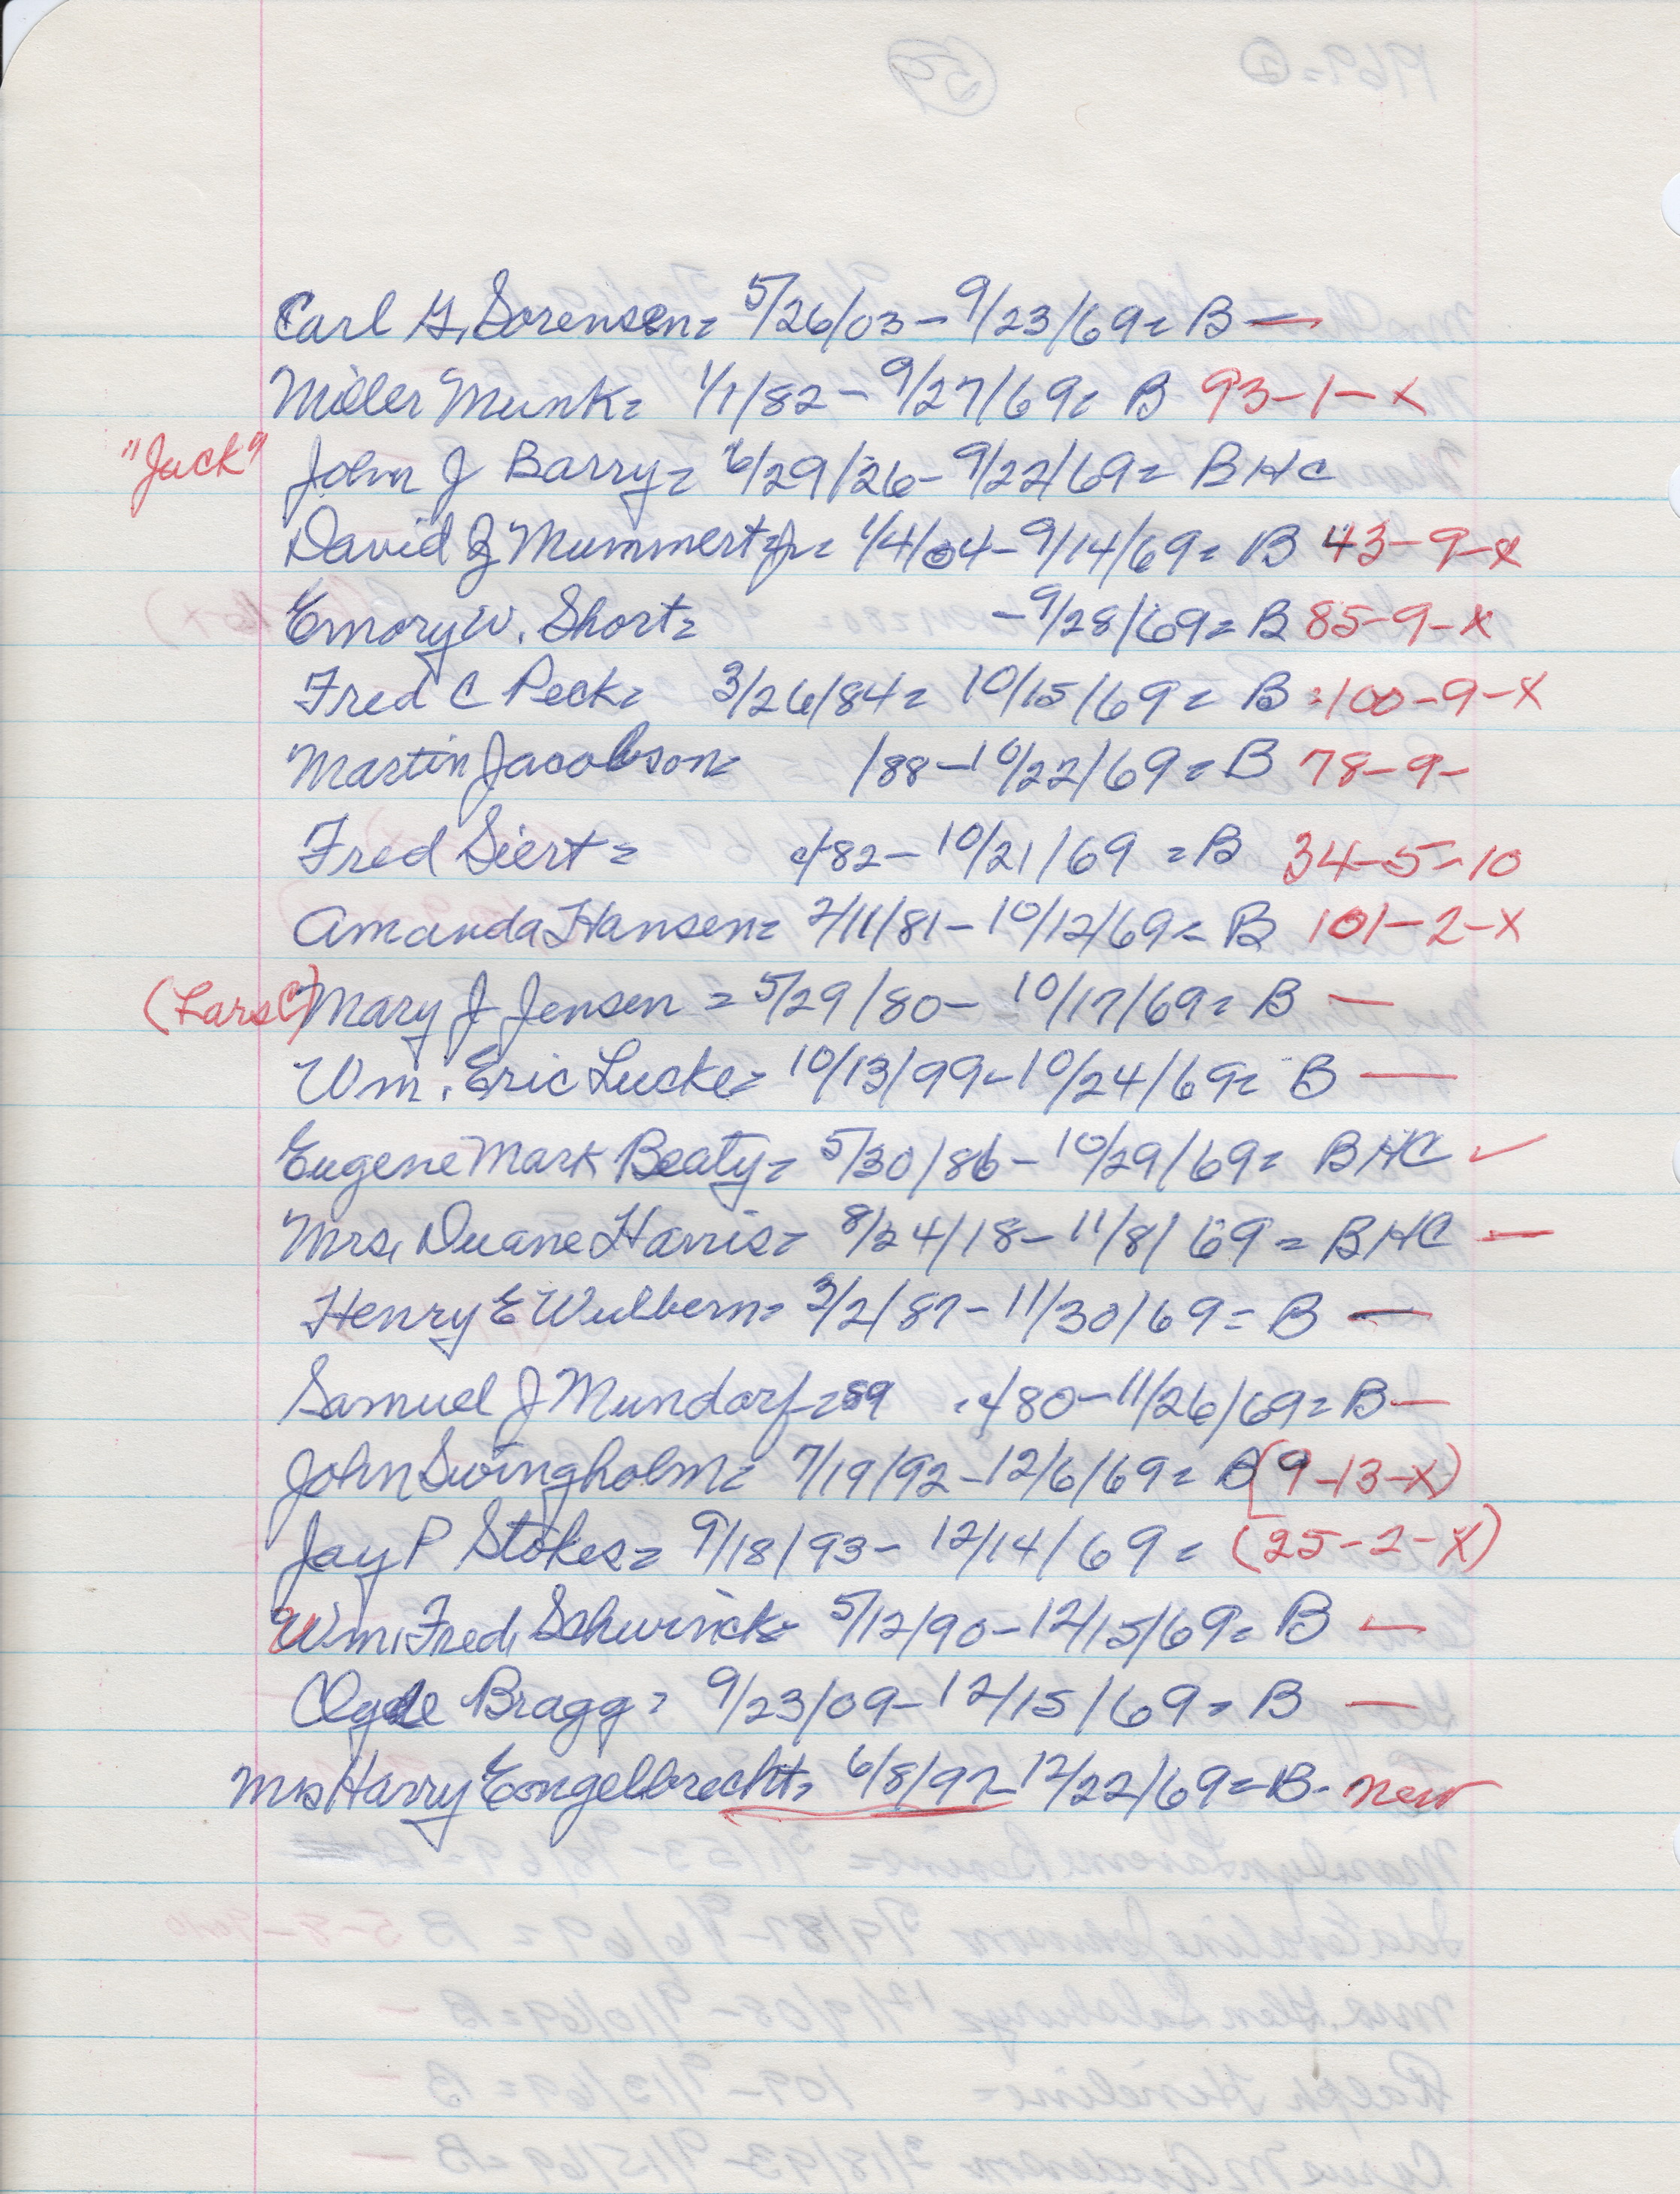 Carl G. Sorensen= 5/26/03-9/23/69= B —
Miller Munk= 1/1/82-9/27/69= B 93-1-x
"Jack" John J Barry= 6/29/26-9/22/69= BHC
David Z Mummert Jr= 1/4/04-9/14/69= B 43-9-x
Emory W. Short= -9/28/69= B 85-9-x
Fred C Peck= 3/26/84= 10/15/69= B =100-9-x
Martin Jacobson= /88-10/22/69= B 78-9-
Fred Siert= c/82-10/21/69 =B 34-5-10
Amanda Hansen= 2/11/81-10/12/69= B 101-2-x
(Lars C) Mary J Jensen = 5/29/80-10/17/69= B —
Wm. Eric Lucke= 10/13/99-10/24/69= B —
Eugene Mark Beaty= 5/30/86-10/29/69= BHC ✓
Mrs. Duane Harris= 8/24/18-11/8/69= BHC —
Henry E Wulbern= 2/87-11/30/69= B —
Samuel J Mundorf= 89 c/80-11/26/69= B —
John Swingholm= 7/19/92-12/6/69= B (9-13-x)
Jay P Stokes= 9/18/93-12/14/69= (25-2-x)
Wm. Fred. Schwinck= 5/12/90-12/15/69= B —
Clyde Bragg= 9/23/09-12/15/69= B —
Mrs Harry Eongelbrecht= 6/8/97-12/22/69= B- new